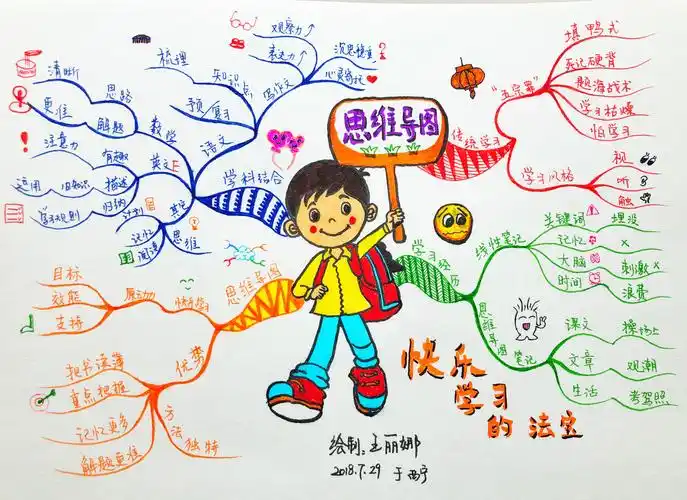 思维导图
传统学习
"五宗罪"
填鸭式
死记硬背
题海战术
学习枯燥
怕学习
学习风格
视
听
触
学习经历
线性笔记
关键词
埋没
记忆
×
大脑
刺激×
时间
浪费
思维导图笔记
课文
操场上
文章
观潮
生活
考驾照
思维导图
优势
快乐学习
原动力
目标
效能
支持
方法独特
把书读薄
重点把握
记忆更多
解题更准
学科结合
语文
写作文
观察力↑
表达力↑
沉思稳重
心灵笔记
知识点
梳理
预
复习
数学
思路
清晰
解题
更准
英文
有趣
注意力
描述
旧知识
运用
归纳
学习规则
其它
计划
记忆
阅读
思维
快乐
学习
的法宝
绘制:王丽娜
2018.7.29 于西宁